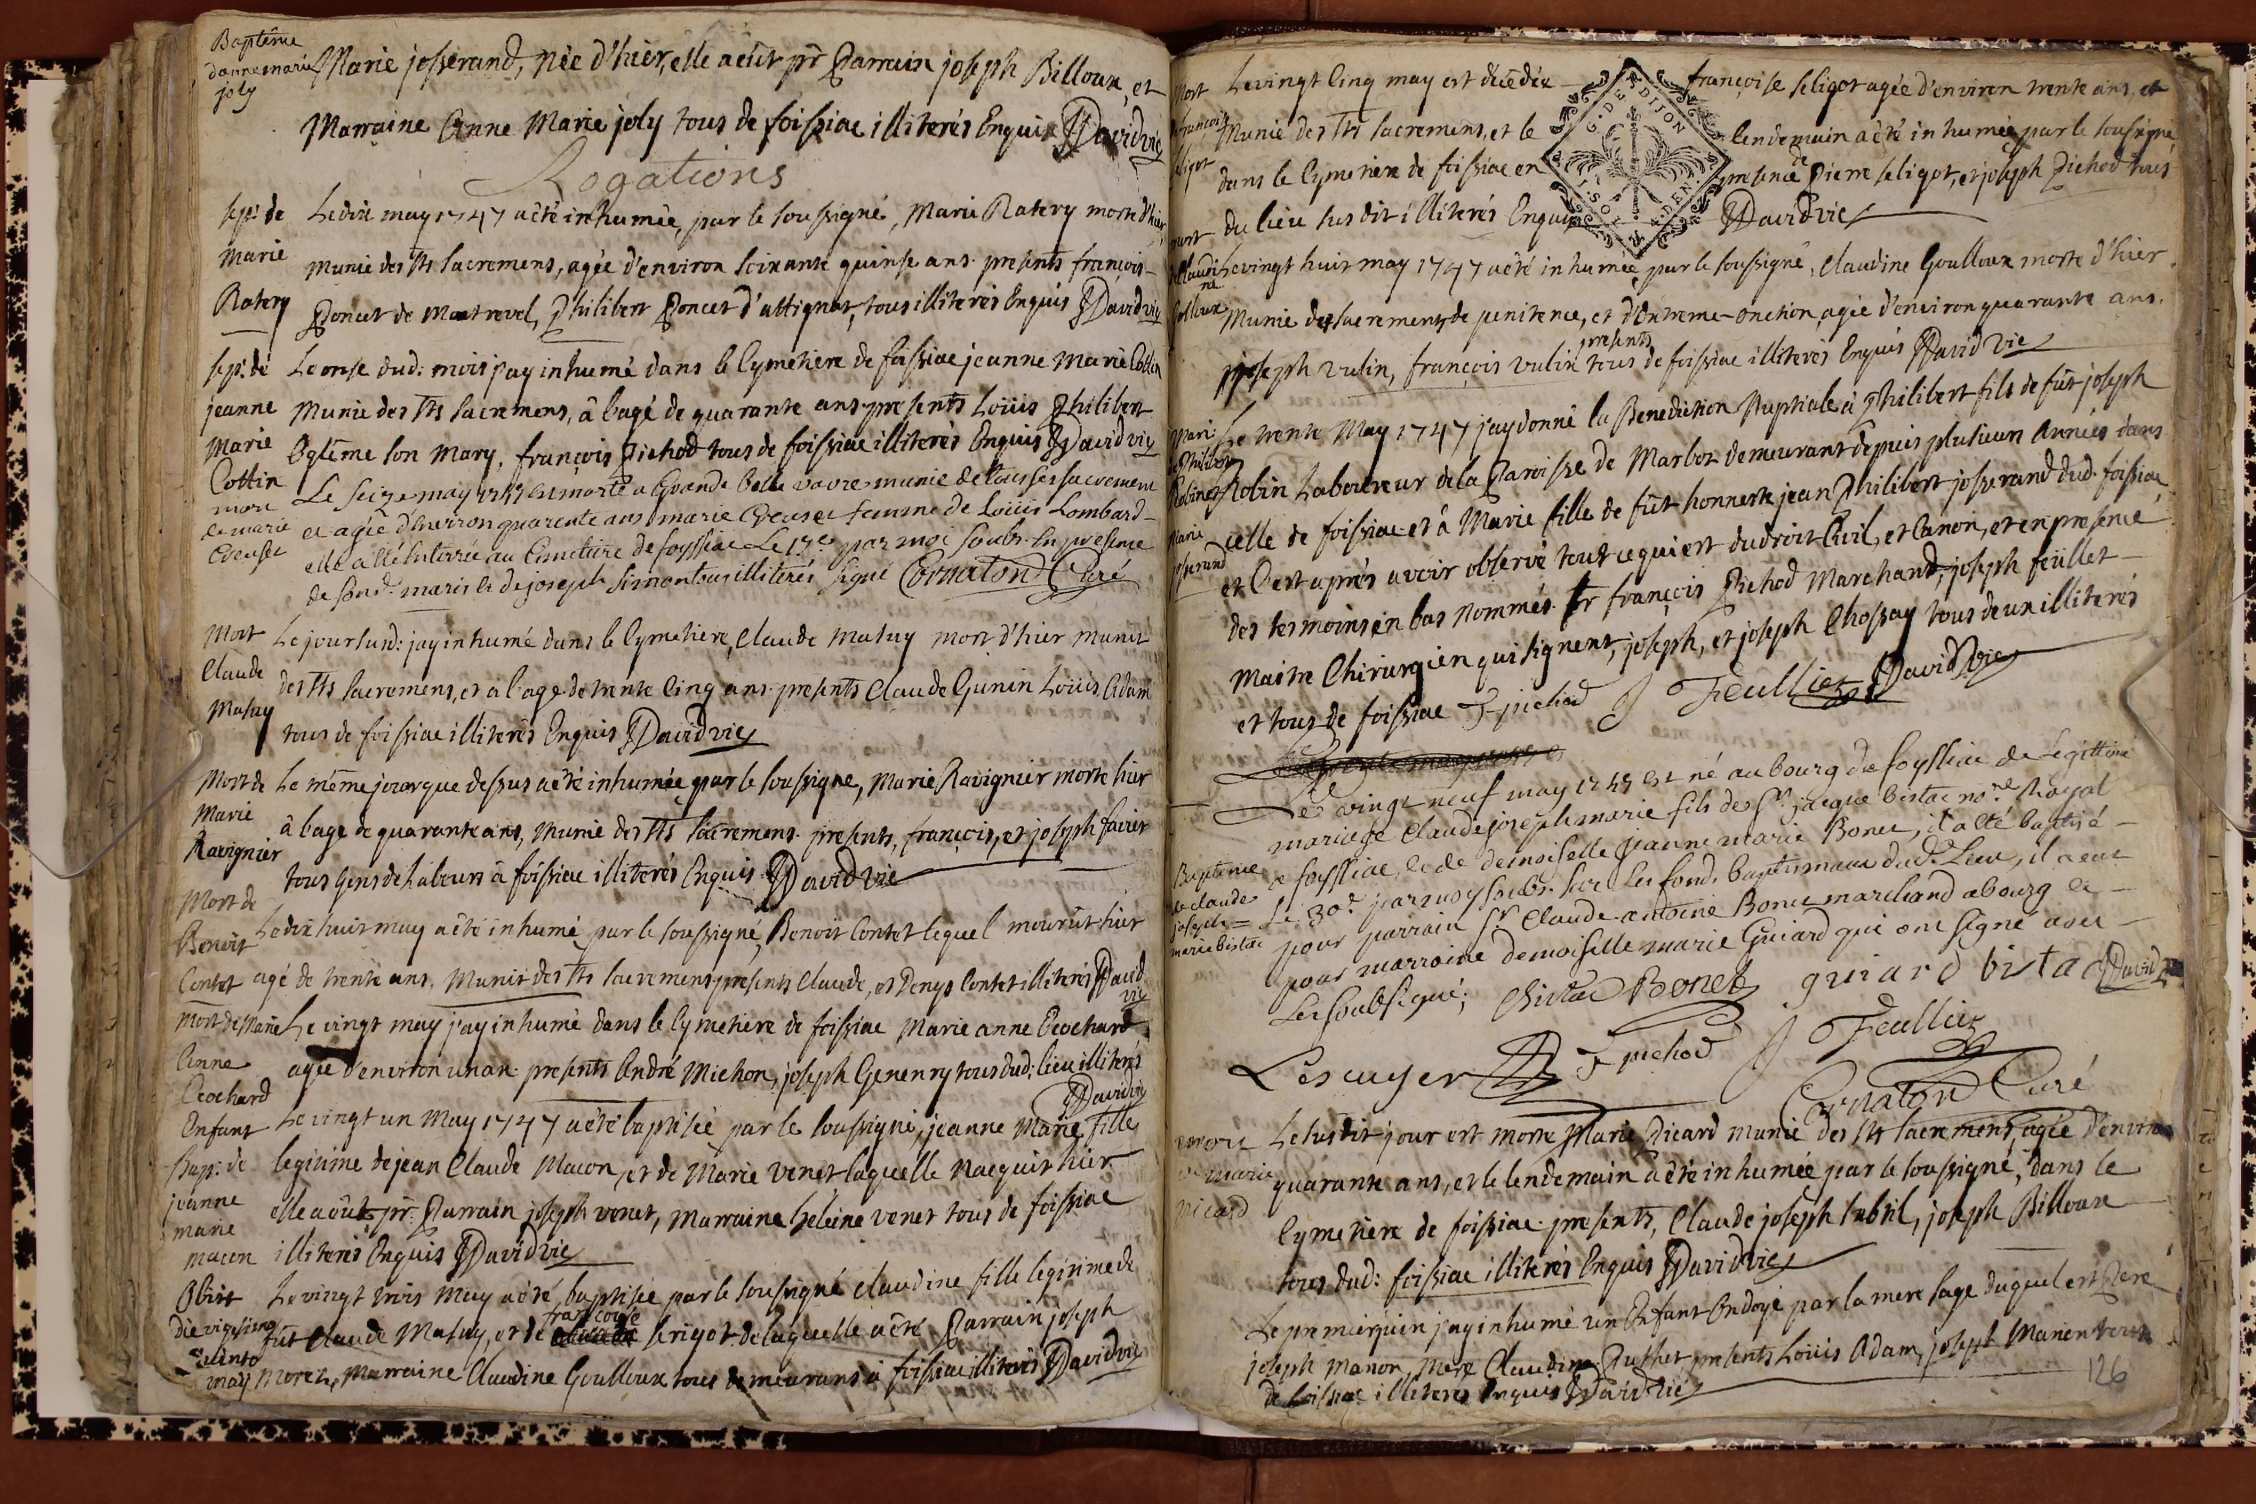 Baptême
d'anne marie
joly
Marie josserand, née d'hier, elle a eüt pr Parrain joseph Billoux, et
Marraine Anne Marie joly tous de foissiac illiterés Enquis David vic
Rogations
sep: de
Marie
Ratery
Le dix may 1747 a été inhumée, par le soussigné, Marie Ratery morte d'hier,
munie des Sts sacremens, agée d'environ soixante quinse ans. presents françois
Poncet de Montrevel, Philibert Poncet d'attignat, tous illiterés Enquis David vic
sep: de
jeanne
Marie
Cottin
Le onse dud: mois jay inhumé dans le Cymetiere de foissiac jeanne Marie Cottin
Munie des Sts sacremens, â l'agé de quarante ans presents Loüis Philibert
son Mary, françois Pichod tous de foissiac illiterés Enquis David vic
mort
de marie
Creuset
Le seize may 1747 est morte a Grande Vavre munie de tous ses sacrement
et agée d'environ quarente ans marie Creuset femme de Loüis Lombard
elle a été Enterrée au Cimetiere de foyssiac Le 17e par moi soubs. En presence
de sond. maris et de joseph simon tous illiterés signé Cornaton Curé
Mort
Claude
Masuy
Le jour susd: jay inhumé dans le Cymetiere, Claude Masuy mort d'hier munit
des Sts sacremens, et a l'age de trente Cinq ans. presents Claude Gunin Loüis Adam
tous de foissiac illiterés Enquis David vic
Mort de
Marie
Ravignier
Le même jour que dessus a été inhumée par le soussigne, Marie Ravignier morte hier
â l'age de quarante ans, Munie des Sts sacremens. presents, françois, et joseph favier
tous Gens de Labeurs â foissiac illiterés Enquis David vic
Mort de
Benoit
Contet
Le dix huit may a été inhumé par le soussigné, Benoit Contet lequel mourût hier
agé de trente ans, Munit des Sts sacremens presents Claude, et Denys Contet illiterés David
vic
Mort de Marie
Anne
Crochard
Enfant
Le vingt may j'ay inhumé dans le Cymetiere de foissiac Marie anne Crochard
agée d'environ un an. presents André Michon, joseph Genenry tous dud: lieu illiterés
David vic
Bap: de
jeanne
marie
macon
Le vingt un May 1747 a été baptisée par le soussigné, jeanne Marie fille
legitime de jean Claude Macon, et de Marie venet laquelle nacquit hier
elle a eüt pr. Parrain joseph venet, Marraine heleine venet tous de foissiac
illiterés Enquis David vic
Obiit
die vigesimo
quinto
may
Le vingt trois may a été baptisée par le soussigné claudine fille legitime de
fût Claude Masuy, et de françoise serigot. de laquelle a été Parrain joseph
morez, Marraine Claudine Goulloux tous demeurans â foissiac illiterés David vic
Mort
de francoise
seligot
Le vingt Cinq may est décédée françoise seligot agée d'environ trente ans, et
Munie des Sts sacremens, et le lendemain a été inhumée par le soussigné
dans le Cymetiere de foissiac en presence de Pierre seligot, et joseph Pichod tous
du lieu sus dit illiterés Enquis David vic
G. DE DIJON
mort
de Claudi
ne
Golloux
Le vingt huit may 1747 a été inhumée par le soussigné, Claudine Goulloux morte d'hier
Munie des sacremens de penitence, et d'Extreme-onction, agée d'environ quarante ans.
joseph vulin, françois vulin presents tous de foissiac illiterés Enquis David vic
Mari
de Philibert
Robin et
Marie
josserand
Le trente May 1747 jay donné la Benediction Nuptiale à Philibert fils de fût joseph
Robin Laboureur de la Paroisse de Marboz demeurant depuis plusieurs Années dans
celle de foissiac et â Marie fille de fût honneste jean Philibert josserand dud. foissiac
et C'est après avoir observé tout ce qui est du droit Civil, et Canon, et en presence
des tesmoins en bas Nommés. Sr françois Pichod Marchand, joseph feüllet
Maitre Chirurgien qui signent, joseph, et joseph Chossay tous deux illiterés
et tous de foissiac F. pichod J Feulliet David vic
Baptême
de claude
joseph
marie bistac
Le vingt neuf may 1747 est né au bourg de foyssiac de Legittime
mariage Claude joseph marie fils de Sr. jacque bistac nore. Royal
a foyssiac, et de demoiselle jeanne marie Bonet, il a été baptisé
Le 30e. par moy soubs. sur les fond. baptismaux dud. Lieu, il a eut
pour parrain Sr. Claude antoine Bonet marchand a bourg et
pour marraine demoiselle marie Guiard qui ont signé avec
Les soubsigné; Bistac Bonet guiard bistac David vic
Lescuyer F. pichod J Feulliet
Cornaton Curé
mort
de marie
Picard
Le susdit jour est morte Marie Picard munie des Sts sacremens, agée d'environ
quarante ans, et le lendemain a été inhumée par le soussigné, dans le
Cymetiere de foissiac. presents, Claude joseph subtil, joseph Billoux
tous dud: foissiac illiterés Enquis David vic
Le premier juin jay inhumé un Enfant Ondoyé par la mere sage duquel est Pere
joseph Manon, Mere Claudine Puthet presents Loüis Adam, joseph Manon tous
de foissiac illiterés Enquis David vic
126